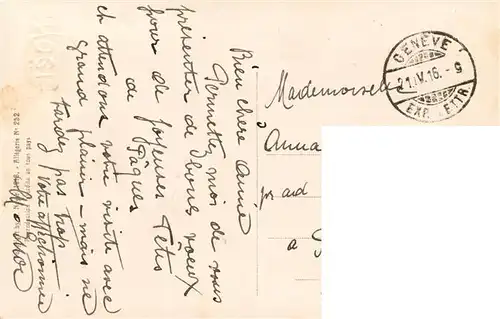 Bien chère amie
Permettez moi de vous
présenter de bons vœux
pour de joyeuses Fêtes
de Pâques
et attendons votre visite avec
grand plaisir - mais ne
tardez pas trop
votre affectionnée
Mademoiselle
Anna
a
GENÈVE
21.IV.16.-9
EXP. LETTR.